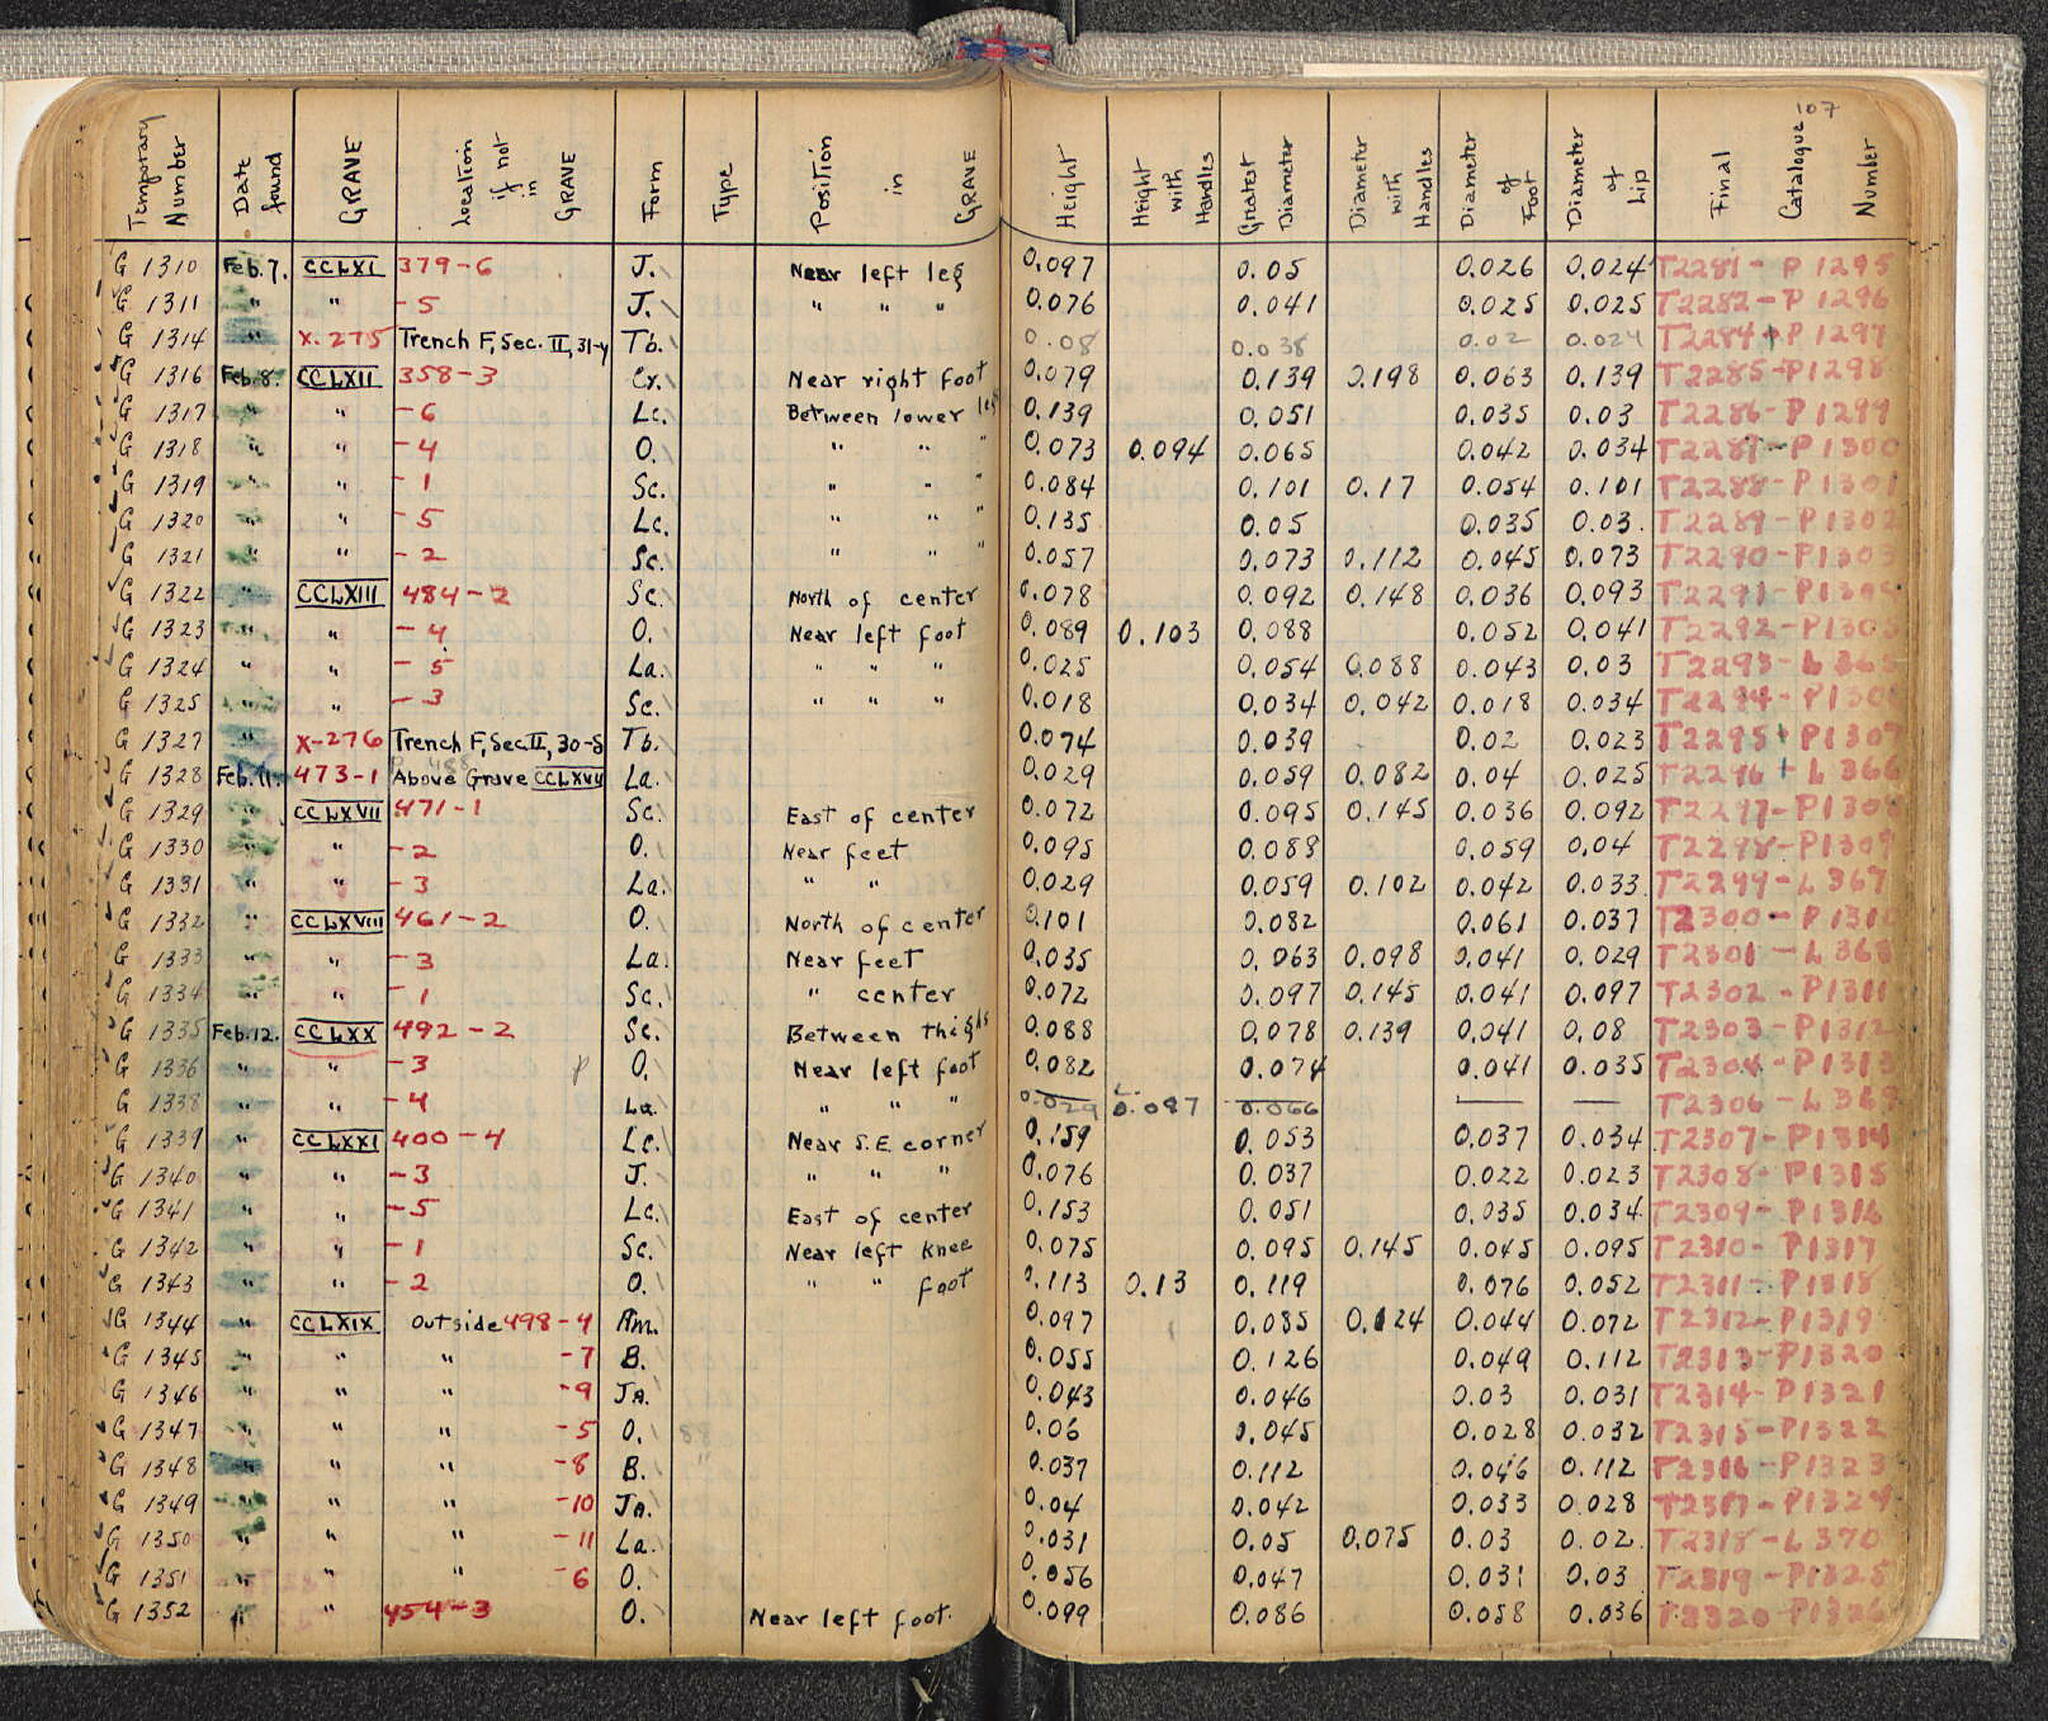 107
Temporary Number | Date found | GRAVE | Location if not in GRAVE | Form | Type | Position in GRAVE | Height | Height with Handles | Greatest Diameter | Diameter with Handles | Diameter of Foot | Diameter of Lip | Final Catalogue Number
G 1310 Feb. 7. CCLXI 379-6 J. Near left leg 0.097 0.05 0.026 0.024 T2281- P 1295
G 1311 " " -5 J. " " " 0.076 0.041 0.025 0.025 T2282- P 1296
G 1314 " X-275 Trench F, Sec. II, 31-4 Tb. 0.08 0.038 0.02 0.024 T2284+P 1297
G 1316 Feb. 8. CCLXII 358-3 Cr. Near right foot 0.079 0.139 0.198 0.063 0.139 T2285-P1298
G 1317 " " -6 Lc. Between lower legs 0.139 0.051 0.035 0.03 T2286-P 1299
G 1318 " " -4 O. " " " 0.073 0.094 0.065 0.042 0.034 T2287-P1300
G 1319 " " -1 Sc. " " " 0.084 0.101 0.17 0.054 0.101 T2288-P1301
G 1320 " " -5 Lc. " " " 0.135 0.05 0.035 0.03. T2289-P1302
G 1321 " " -2 Sc. " " " 0.057 0.073 0.112 0.045 0.073 T2290-P1303
G 1322 " CCLXIII 484-2 Sc. North of center 0.078 0.092 0.148 0.036 0.093 T2291-P1304
G 1323 " " -4 O. Near left foot 0.089 0.103 0.088 0.052 0.041 T2292-P1305
G 1324 " " -5 La. " " " 0.025 0.054 0.088 0.043 0.03 T2293-L365
G 1325 " " -3 Sc. " " " 0.018 0.034 0.042 0.018 0.034 T2294-P1306
G 1327 " X-276 Trench F, Sec. II, 30-S Tb. 0.074 0.039 0.02 0.023 T2295+ P1307
G 1328 Feb. 11. 473-1 Above Grave CCLXVII La. 0.029 0.059 0.082 0.04 0.025 T2296 +L 366
G 1329 " CCLXVII 471-1 Sc. East of center 0.072 0.095 0.145 0.036 0.092 T2297-P1308
G 1330 " " -2 O. Near feet 0.095 0.088 0.059 0.04 T2298-P1309
G 1331 " " -3 La. " " 0.029 0.059 0.102 0.042 0.033 T2299-L367
G 1332 " CCLXVIII 461-2 O. North of center 0.101 0.082 0.061 0.037 T2300-P1310
G 1333 " " -3 La. Near feet 0.035 0.063 0.098 0.041 0.029 T2301-L368
G 1334 " " -1 Sc. " center 0.072 0.097 0.145 0.041 0.097 T2302-P1311
G 1335 Feb. 12. CCLXX 492-2 Sc. Between thighs 0.088 0.078 0.139 0.041 0.08 T2303-P1312
G 1336 " " -3 P O. Near left foot 0.082 0.074 0.041 0.035 T2304-P1313
G 1338 " " -4 La. " " " 0.029 L. 0.087 0.066 — — T2306-L369
G 1339 " CCLXXI 400-4 Lc. Near S.E. corner 0.159 0.053 0.037 0.034 T2307-P1314
G 1340 " " -3 J. " " " 0.076 0.037 0.022 0.023 T2308-P1315
G 1341 " " -5 Lc. East of center 0.153 0.051 0.035 0.034 T2309-P1316
G 1342 " " -1 Sc. Near left knee 0.075 0.095 0.145 0.045 0.095 T2310-P1317
G 1343 " " -2 O. " " foot 0.113 0.13 0.119 0.076 0.052 T2311-P1318
G 1344 " CCLXIX outside 498-4 Am. 0.097 0.085 0.124 0.044 0.072 T2312-P1319
G 1345 " " " -7 B. 0.055 0.126 0.049 0.112 T2313-P1320
G 1346 " " " -9 Ja. 0.043 0.046 0.03 0.031 T2314-P1321
G 1347 " " " -5 O. 88 0.06 0.045 0.028 0.032 T2315-P1322
G 1348 " " " -8 B. " 0.037 0.112 0.046 0.112 T2316-P1323
G 1349 " " " -10 Ja. 0.04 0.042 0.033 0.028 T2317-P1324
G 1350 " " " -11 La. 0.031 0.05 0.075 0.03 0.02 T2318-L370
G 1351 " " " -6 O. 0.056 0.047 0.031 0.03 T2319-P1325
G 1352 " " 454-3 O. Near left foot. 0.099 0.086 0.058 0.036 T2320-P1326